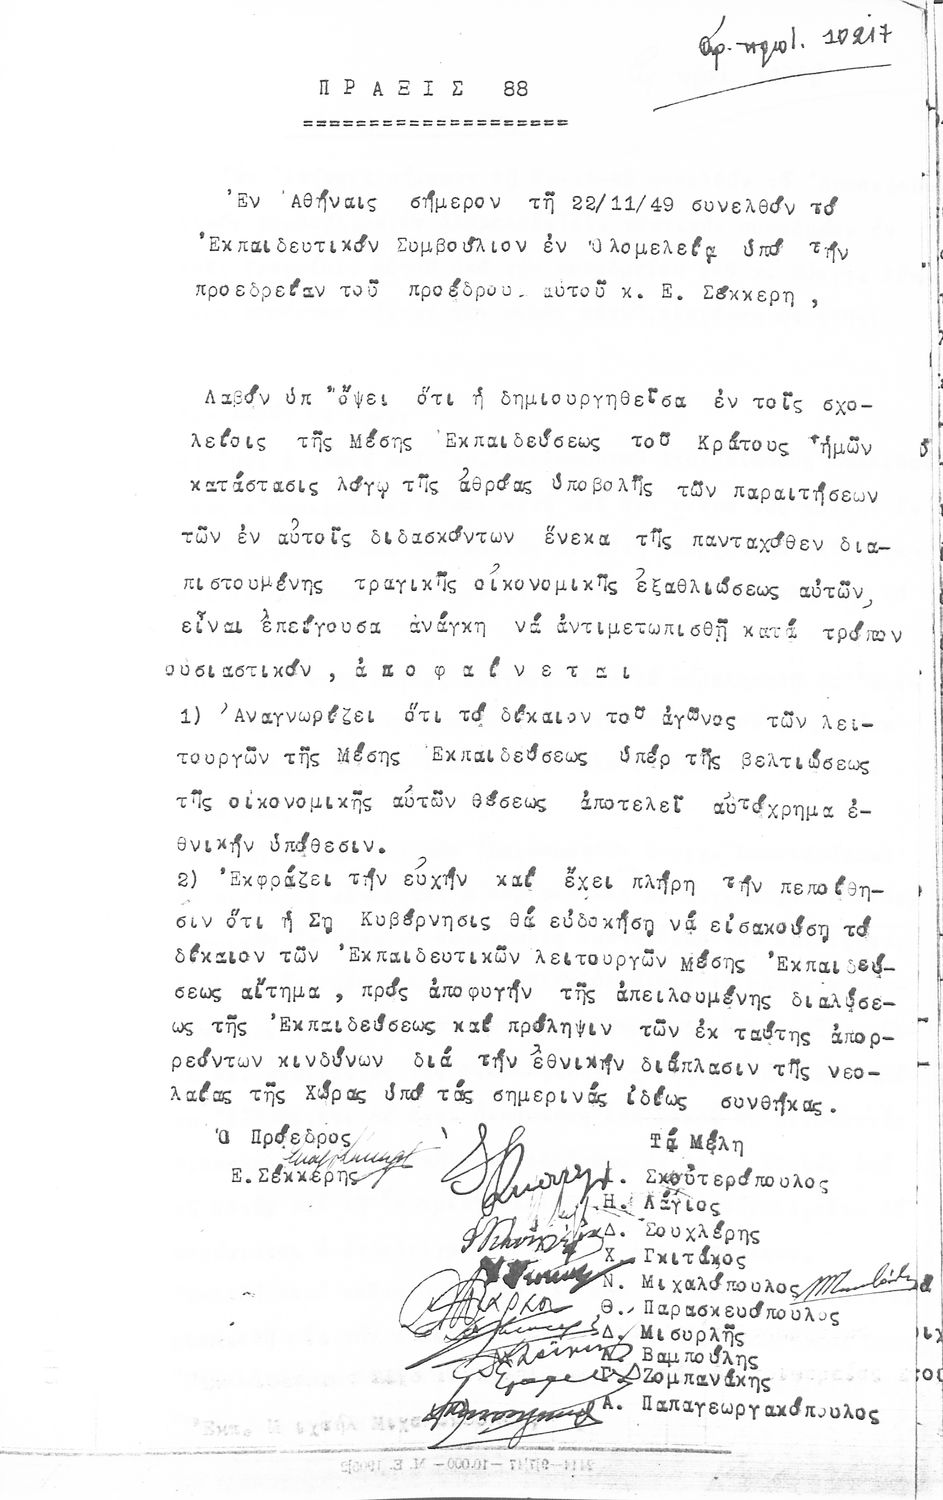 ἀρ. πρωτ. 10217
ΠΡΑΞΙΣ 88
Ἐν Ἀθήναις σήμερον τῇ 22/11/49 συνελθόν τό
Ἐκπαιδευτικόν Συμβούλιον ἐν Ὁλομελείᾳ ὑπό τήν
προεδρείαν τοῦ προέδρου αὐτοῦ κ. Ε. Σέκκερη,
Λαβόν ὑπ' ὄψει ὅτι ἡ δημιουργηθεῖσα ἐν τοῖς σχο-
λείοις τῆς Μέσης Ἐκπαιδεύσεως τοῦ Κράτους ἡμῶν
κατάστασις λόγῳ τῆς ἀθρόας ὑποβολῆς τῶν παραιτήσεων
τῶν ἐν αὐτοῖς διδασκόντων ἕνεκα τῆς πανταχόθεν δια-
πιστουμένης τραγικῆς οἰκονομικῆς ἐξαθλιώσεως αὐτῶν,
εἶναι ἐπείγουσα ἀνάγκη νά ἀντιμετωπισθῇ κατά τρόπον
οὐσιαστικόν, ἀ π ο φ α ί ν ε τ α ι
1) Ἀναγνωρίζει ὅτι τό δίκαιον τοῦ ἀγῶνος τῶν λει-
τουργῶν τῆς Μέσης Ἐκπαιδεύσεως ὑπέρ τῆς βελτιώσεως
τῆς οἰκονομικῆς αὐτῶν θέσεως ἀποτελεῖ αὐτόχρημα ἐ-
θνικήν ὑπόθεσιν.
2) Ἐκφράζει τήν εὐχήν καί ἔχει πλήρη τήν πεποίθη-
σιν ὅτι ἡ Σῃ Κυβέρνησις θά εὐδοκήσῃ νά εἰσακούσῃ τό
δίκαιον τῶν Ἐκπαιδευτικῶν λειτουργῶν Μέσης Ἐκπαιδεύ-
σεως αἴτημα, πρός ἀποφυγήν τῆς ἀπειλουμένης διαλύσε-
ως τῆς Ἐκπαιδεύσεως καί πρόληψιν τῶν ἐκ ταύτης ἀπορ-
ρεόντων κινδύνων διά τήν ἐθνικήν διάπλασιν τῆς νεο-
λαίας τῆς Χώρας ὑπό τάς σημερινάς ἰδίως συνθήκας.
Ὁ Πρόεδρος
Τά Μέλη
Ε. Σέκκερης
Σκουτερόπουλος
Η. Λάγιος
Δ. Σουχλέρης
Χ. Γκιτάκος
Ν. Μιχαλόπουλος
Θ. Παρασκευόπουλος
Δ. Μισυρλῆς
Ν. Βαμπούλης
Γ. Ζομπανάκης
Α. Παπαγεωργακόπουλος